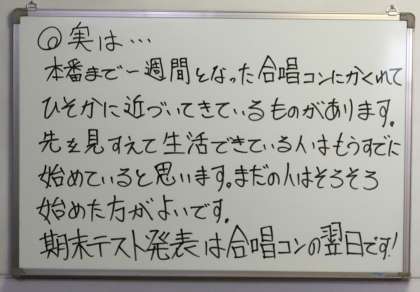 ◎実は…
本番まで一週間となった合唱コンにかくれて
ひそかに近づいてきているものがあります。
先を見すえて生活できている人はもうすでに
始めていると思います。まだの人はそろそろ
始めた方がよいです。
期末テスト発表は合唱コンの翌日です!